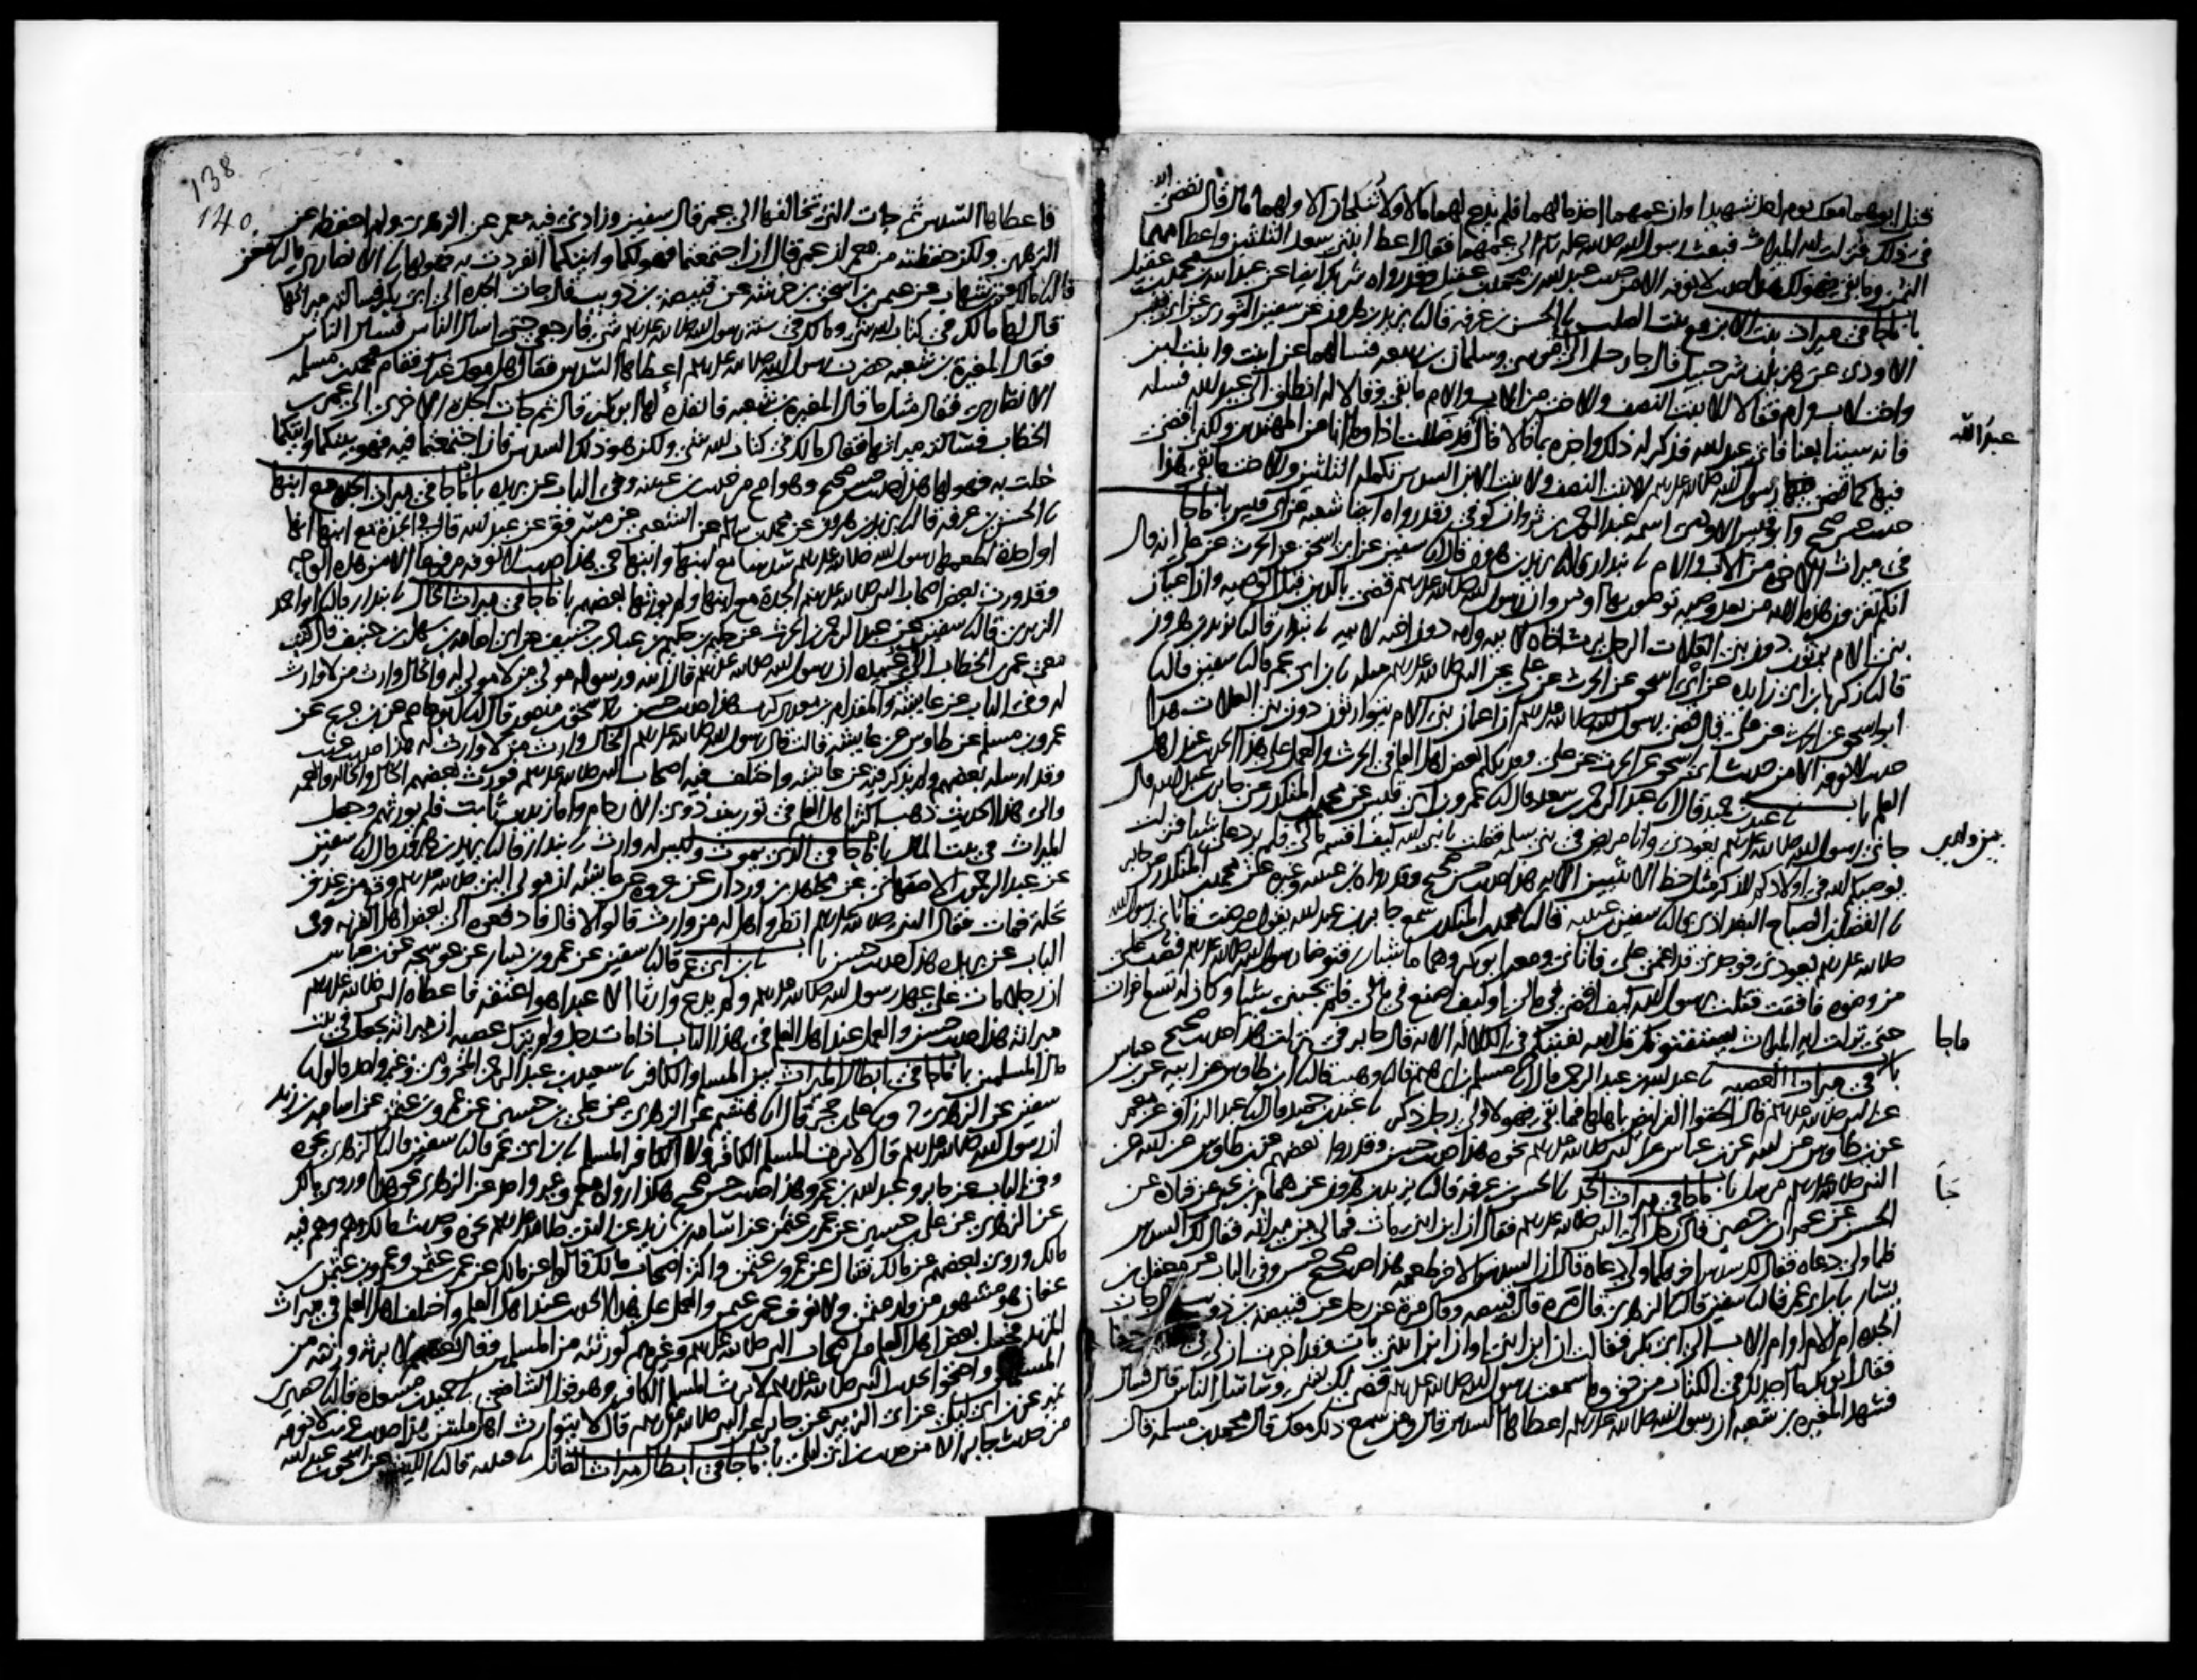 قتل ابوهما معك يوم احد شهيدا وان عمهما اخذ مالهما فلم يدع لهما مالا ولا تنكحان الا ولهما مال قال يقضي الله
في ذلك فنزلت اية الميراث فبعث رسول الله صلى الله عليه وسلم الى عمهما فقال اعط ابنتي سعد الثلثين واعط امهما
الثمن وما بقي فهو لك هذا حديث لا نعرفه الا من حديث عبد الله بن محمد بن عقيل وقد رواه شريك ايضا عن عبد الله بن محمد بن عقيل
باب ما جا في ميراث بنت الابن مع بنت الصلب نا الحسن بن عرفه قال نا يزيد بن هرون عن سفين الثوري عن ابي قيس
الاودي عن هزيل بن شرحبيل قال جا رجل الى ابي موسى وسلمان بن ربيعه فسالهما عن ابنت وابنت ابن
واخت لاب وام فقالا للابنت النصف وللاخت من الاب والام ما بقي وقالا له انطلق الى عبد الله فسله
فانه سيتابعنا فاتى عبد الله فذكر له ذلك واخبره بما قالا قال قد ضللت اذا وما انا من المهتدين ولكن اقضي
عبد الله
فيها كما قضى رسول الله صلى الله عليه وسلم للابنت النصف ولابنت الابن السدس تكمله الثلثين وللاخت ما بقي هذا
حديث حسن صحيح وابو قيس الاودي اسمه عبد الرحمن بن ثروان كوفي وقد رواه ايضا شعبه عن ابي قيس باب ما جا
في ميراث الاخوه من الاب والام نا بندار قال نا يزيد بن هرون قال نا سفين عن ابي اسحق عن الحرث عن علي انه قال
انكم تقرون هذه الايه من بعد وصيه توصون بها او دين وان رسول الله صلى الله عليه وسلم قضى بالدين قبل الوصيه وان اعيان
بني الام يرثون دون بني العلات الرجل يرث اخاه لابيه وامه دون اخيه لابيه نا بندار قال نا يزيد بن هرون
قال نا زكريا بن ابي زايده عن ابي اسحق عن الحرث عن علي عن النبي صلى الله عليه وسلم مثله نا بن ابي عمر قال نا سفين قال نا
ابو اسحق عن الحرث عن علي قال قضى رسول الله صلى الله عليه وسلم ان اعيان بني الام يتوارثون دون بني العلات هذا
حديث لا نعرفه الا من حديث ابي اسحق عن الحرث عن علي وقد تكلم بعض اهل العلم في الحرث والعمل على هذا الحديث عند اهل
العلم باب نا عبد بن حميد قال انا عبد الرحمن بن سعد قال نا عمرو بن ابي قيس عن محمد بن المنكدر عن جابر بن عبد الله قال
جاني رسول الله صلى الله عليه وسلم يعودني وانا مريض في بني سلمه فقلت يا نبي الله كيف اقسم مالي فلم يرد علي شيا فنزلت
يوصيكم الله في اولادكم للذكر مثل حظ الانثيين الايه هذا حديث حسن صحيح وقد رواه بن عيينه وغيره عن محمد بن المنكدر عن جابر
نا الفضل بن الصباح البغدادي قال نا سفين بن عيينه قال نا محمد بن المنكدر سمع جابر بن عبد الله يقول مرضت فاتاني رسول الله
صلى الله عليه وسلم يعودني فوجدني قد اغمي علي فاتاني ومعه ابو بكر وهما ماشيان فتوضا رسول الله صلى الله عليه وسلم فصب علي
من وضوه فافقت فقلت يا رسول الله كيف اقضي في مالي او كيف اصنع في مالي فلم يجبني شيا وكان له تسع اخوات
حتى نزلت ايه الميراث يستفتونك قل الله يفتيكم في الكلاله الايه قال جابر في نزلت هذا حديث صحيح
ما جا
باب في ميراث العصبه نا عبد الله بن عبد الرحمن قال انا مسلم بن ابراهيم قال نا وهيب قال نا ابن طاوس عن ابيه عن بن عباس
عن النبي صلى الله عليه وسلم قال الحقوا الفرايض باهلها فما بقي فهو لاولى رجل ذكر نا عبد بن حميد قال نا عبد الرزاق عن معمر
عن بن طاوس عن ابيه عن بن عباس عن النبي صلى الله عليه وسلم نحوه هذا حديث حسن وقد روى بعضهم عن بن طاوس عن ابيه عن
النبي صلى الله عليه وسلم مرسلا باب ما جا في ميراث الجد نا الحسن بن عرفه قال نا يزيد بن هرون عن همام بن يحيى عن قتاده عن
الحسن عن عمران بن حصين قال جا رجل الى النبي صلى الله عليه وسلم فقال ان ابن ابني مات فما لي من ميراثه فقال لك السدس
فلما ولى دعاه فقال لك سدس اخر فلما ولى دعاه قال ان السدس الاخر طعمه هذا حديث صحيح حسن وفي الباب عن معقل بن
يسار نا بن ابي عمر قال نا سفين قال نا الزهري قال مره قال قبيصه وقال مره عن رجل عن قبيصه بن ذويب قال جات
الجده ام الام او ام الاب الى ابي بكر فقالت ان ابن ابني او ان ابن ابنتي مات وقد اخبرت ان لي في حقا
فقال ابو بكر ما اجد لك في الكتاب من حق وما سمعت رسول الله صلى الله عليه وسلم قضى لك بشي وساسل الناس قال فسال
فشهد المغيره بن شعبه ان رسول الله صلى الله عليه وسلم اعطاها السدس قال ومن سمع ذلك معك قال محمد بن مسلمه قال
138
140
فاعطاها السدس ثم جات التي تخالفها الى عمر قال سفين وزادني فيه معمر عن الزهري ولم احفظه عن
الزهري ولكن حفظته من معمر ان عمر قال ان اجتمعتما فهو لكما وايتكما انفردت به فهو لها نا الانصاري قال نا معن
قال نا مالك عن بن شهاب عن عثمن بن اسحق بن خرشه عن قبيصه بن ذويب قال جات الجده الى ابي بكر فسالته ميراثها
قال لها ما لك في كتاب الله شي وما لك في سنه رسول الله صلى الله عليه وسلم شي فارجعي حتى اسال الناس فسال الناس
فقال المغيره بن شعبه حضرت رسول الله صلى الله عليه وسلم اعطاها السدس فقال هل معك غيرك فقام محمد بن مسلمه
الانصاري فقال مثل ما قال المغيره بن شعبه فانفذه لها ابو بكر قال ثم جات الجده الاخرى الى عمر بن
الخطاب فسالته ميراثها فقال ما لك في كتاب الله شي ولكن هو ذلك السدس فان اجتمعتما فيه فهو بينكما وايتكما
خلت به فهو لها هذا حديث حسن صحيح وهو اصح من حديث بن عيينه وفي الباب عن بريده باب ما جا في ميراث الجده مع ابنها
نا الحسن بن عرفه قال نا يزيد بن هرون عن محمد بن سالم عن الشعبي عن مسروق عن عبد الله قال في الجده مع ابنها انها
اول جده اطعمها رسول الله صلى الله عليه وسلم سدسا مع ابنها وابنها حي هذا حديث لا نعرفه مرفوعا الا من هذا الوجه
وقد ورث بعض اصحاب النبي صلى الله عليه وسلم الجدة مع ابنها ولم يورثها بعضهم باب ما جا في ميراث الخال نا بندار قال نا ابو احمد
الزبيري قال نا سفين عن عبد الرحمن بن الحرث عن حكيم بن حكيم بن عباد بن حنيف عن ابي امامه بن سهل بن حنيف قال كتب
معي عمر بن الخطاب الى ابي عبيده ان رسول الله صلى الله عليه وسلم قال الله ورسوله مولى من لا مولى له والخال وارث من لا وارث
له وفي الباب عن عايشه والمقدام بن معدي كرب هذا حديث حسن نا اسحق بن منصور قال نا ابو عاصم عن بن جريج عن
عمرو بن مسلم عن طاوس عن عايشه قالت قال رسول الله صلى الله عليه وسلم الخال وارث من لا وارث له هذا حديث غريب
وقد ارسله بعضهم ولم يذكر فيه عن عايشه واختلف فيه اصحاب النبي صلى الله عليه وسلم فورث بعضهم الخال والخاله والعمه
والى هذا الحديث ذهب اكثر اهل العلم في توريث ذوي الارحام واما زيد بن ثابت فلم يورثهم وجعل
الميراث في بيت المال باب ما جا في الذي يموت وليس له وارث نا بندار قال نا يزيد بن هرون قال نا سفين
عن عبد الرحمن الاصفهاني عن مجاهد بن وردان عن عروه عن عايشه ان مولى النبي صلى الله عليه وسلم وقع من عذق
نخله فمات فقال النبي صلى الله عليه وسلم انظروا هل له من وارث قالوا لا قال فادفعوه الى بعض اهل القريه وفي
الباب عن بريده هذا حديث حسن باب نا بن ابي عمر قال نا سفين عن عمرو بن دينار عن عوسجه عن بن عباس
ان رجلا مات على عهد رسول الله صلى الله عليه وسلم ولم يدع وارثا الا عبدا هو اعتقه فاعطاه النبي صلى الله عليه وسلم
ميراثه هذا حديث حسن والعمل عند اهل العلم في هذا الباب اذا مات رجل ولم يترك عصبه ان ميراثه يجعل في بيت
مال المسلمين باب ما جا في ابطال الميراث بين المسلم والكافر نا سعيد بن عبد الرحمن المخزومي وغير واحد قالوا نا
سفين عن الزهري ونا علي بن حجر قال انا هشيم عن الزهري عن علي بن حسين عن عمرو بن عثمن عن اسامه بن زيد
ان رسول الله صلى الله عليه وسلم قال لا يرث المسلم الكافر ولا الكافر المسلم نا بن ابي عمر قال نا سفين قال نا الزهري نحوه
وفي الباب عن جابر وعبد الله بن عمرو هذا حديث حسن صحيح هكذا رواه معمر وغير واحد عن الزهري نحو هذا وروى مالك
عن الزهري عن علي بن حسين عن عمر بن عثمن عن اسامه بن زيد عن النبي صلى الله عليه وسلم نحوه وحديث مالك وهم وهم فيه
مالك وروى بعضهم عن مالك فقال عن عمرو بن عثمن واكثر اصحاب مالك قالوا عن مالك عن عمر بن عثمن وعمرو بن عثمن بن
عفان هو مشهور من ولد عثمن ولا نعرف عمر بن عثمن والعمل على هذا الحديث عند اهل العلم واختلف اهل العلم في ميراث
المرتد فجعل بعض اهل العلم من اصحاب النبي صلى الله عليه وسلم وغيرهم لورثته من المسلمين وقال بعضهم لا يرثه ورثته من
المسلمين واحتجوا بحديث النبي صلى الله عليه وسلم لا يرث المسلم الكافر وهو قول الشافعي نا حميد بن مسعده قال نا حصين بن
نمير عن بن ابي ليلى عن ابي الزبير عن جابر عن النبي صلى الله عليه وسلم قال لا يتوارث اهل ملتين هذا حديث غريب لا نعرفه
من حديث جابر الا من حديث ابن ابي ليلى باب ما جا في ابطال ميراث القاتل نا قتيبه قال نا الليث عن اسحق بن عبد الله